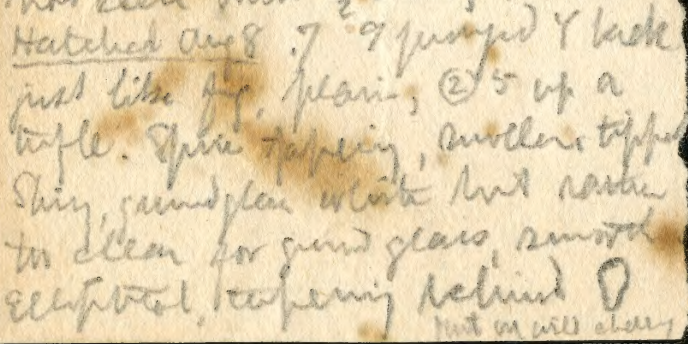 Hatched Aug 8 . 7 9 jumped & back
just like fig, plain, ② 5 up a
trifle. Spine tapering, swollen, tipped
Shiny, ground glass white but rather
too clear for ground glass, smooth
Elliptical, tapering behind
put on wild cherry